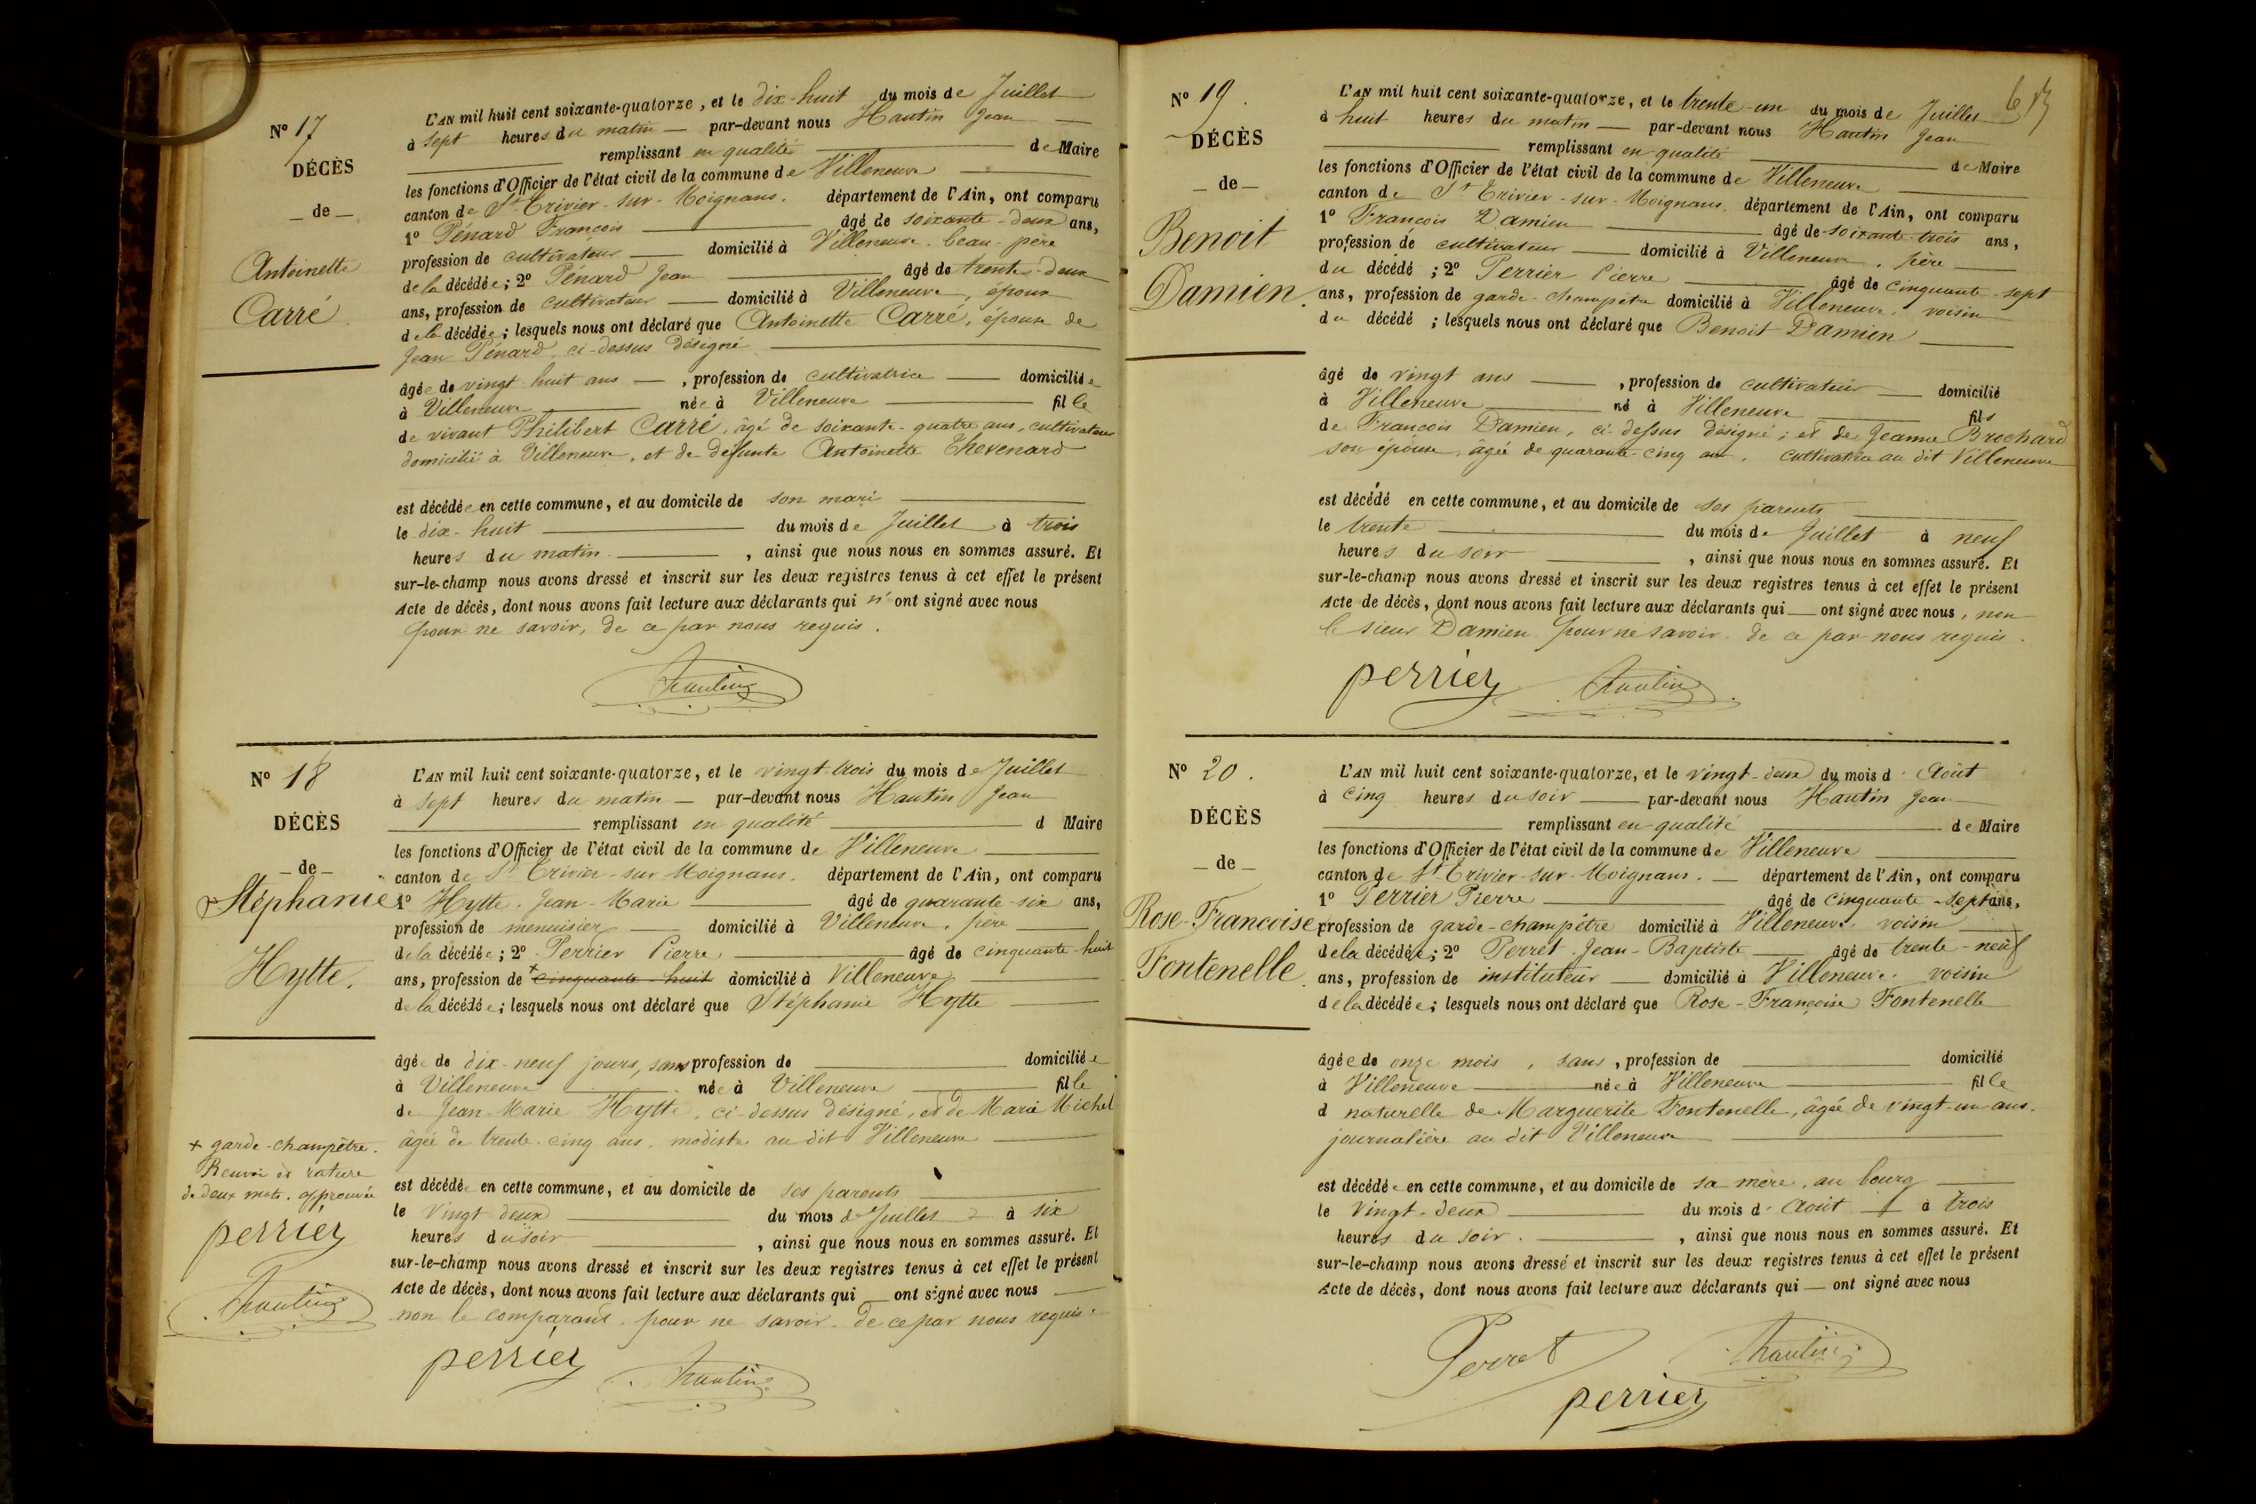 Nº 17
DÉCÈS
de
Antoinette
Carré
L'AN mil huit cent soixante-quatorze, et le dix-huit du mois de Juillet
à sept heures du matin par-devant nous Hautin Jean
remplissant en qualité de Maire
les fonctions d'Officier de l'état civil de la commune de Villeneuve
canton de St Trivier-sur-Moignans. département de l'Ain, ont comparu
1º Pénard François âgé de soixante-deux ans,
profession de cultivateur domicilié à Villeneuve, beau-père
de la décédée; 2º Pénard Jean âgé de trente-deux
ans, profession de cultivateur domicilié à Villeneuve, époux
de la décédée; lesquels nous ont déclaré que Antoinette Carré, épouse de
Jean Pénard ci-dessus désigné
âgée de vingt huit ans, profession de cultivatrice domiciliée
à Villeneuve née à Villeneuve fille
de vivant Philibert Carré, âgé de soixante-quatre ans, cultivateur
domicilié à Villeneuve, et de défunte Antoinette Thevenard
est décédée en cette commune, et au domicile de son mari
le dix-huit du mois de Juillet à trois
heures du matin, ainsi que nous nous en sommes assuré. Et
sur-le-champ nous avons dressé et inscrit sur les deux registres tenus à cet effet le présent
Acte de décès, dont nous avons fait lecture aux déclarants qui n'ont signé avec nous
pour ne savoir, de ce par nous requis.
Hautin
Nº 18
DÉCÈS
de
Stéphanie
Hytte.
+ garde-champêtre.
Renvoi et rature
de deux mots. approuvée
perrier
Hautin
L'AN mil huit cent soixante-quatorze, et le vingt-trois du mois de Juillet
à sept heures du matin par-devant nous Hautin Jean
remplissant en qualité d Maire
les fonctions d'Officier de l'état civil de la commune de Villeneuve
canton de St Trivier-sur Moignans. département de l'Ain, ont comparu
1º Hytte. Jean-Marie âgé de quarante-six ans,
profession de menuisier domicilié à Villeneuve, père
de la décédée; 2º Perrier Pierre âgé de cinquante-huit
ans, profession de + cinquante-huit domicilié à Villeneuve
de la décédée; lesquels nous ont déclaré que Stéphanie Hytte
âgée de dix-neuf jours, sans profession de domiciliée
à Villeneuve née à Villeneuve fille
de Jean-Marie Hytte, ci-dessus désigné, et de Marie Michel
âgée de trente-cinq ans. modiste au dit Villeneuve
est décédée en cette commune, et au domicile de ses parents
le vingt deux du mois de Juillet à six
heures du soir, ainsi que nous nous en sommes assuré. Et
sur-le-champ nous avons dressé et inscrit sur les deux registres tenus à cet effet le présent
Acte de décès, dont nous avons fait lecture aux déclarants qui ont signé avec nous
non le comparant. pour ne savoir. de ce par nous requis.
perrier Hautin
Nº 19.
DÉCÈS
de
Benoit
Damien.
L'AN mil huit cent soixante-quatorze, et le trente-un du mois de Juillet
à huit heures du matin par-devant nous Hautin Jean
remplissant en qualité de Maire
les fonctions d'Officier de l'état civil de la commune de Villeneuve
canton de St Trivier-sur-Moignans. département de l'Ain, ont comparu
1º François Damien âgé de soixante-trois ans,
profession de cultivateur domicilié à Villeneuve, père
du décédé; 2º Perrier Pierre âgé de cinquante-sept
ans, profession de garde-champêtre domicilié à Villeneuve. voisin
du décédé; lesquels nous ont déclaré que Benoit Damien
âgé de vingt ans, profession de cultivateur domicilié
à Villeneuve né à Villeneuve fils
de François Damien, ci-dessus désigné; et de Jeanne Brochard
son épouse, âgée de quarante-cinq ans. cultivatrice au dit Villeneuve
est décédé en cette commune, et au domicile de ses parents
le trente du mois de Juillet à neuf
heures du soir, ainsi que nous nous en sommes assuré. Et
sur-le-champ nous avons dressé et inscrit sur les deux registres tenus à cet effet le présent
Acte de décès, dont nous avons fait lecture aux déclarants qui ont signé avec nous, non
le sieur Damien pour ne savoir. de ce par nous requis.
perrier Hautin
Nº 20.
DÉCÈS
de
Rose-Françoise
Fontenelle.
L'AN mil huit cent soixante-quatorze, et le vingt-deux du mois d'Août
à cinq heures du soir par-devant nous Hautin Jean
remplissant en qualité de Maire
les fonctions d'Officier de l'état civil de la commune de Villeneuve
canton de St Trivier-sur-Moignans. département de l'Ain, ont comparu
1º Perrier Pierre âgé de cinquante-sept ans,
profession de garde-champêtre domicilié à Villeneuve. voisin
de la décédée; 2º Perret Jean-Baptiste âgé de trente-neuf
ans, profession de instituteur domicilié à Villeneuve. voisin
de la décédée; lesquels nous ont déclaré que Rose-Françoise Fontenelle
âgée de onze mois, sans, profession de domicilié
à Villeneuve née à Villeneuve fille
d naturelle de Marguerite Fontenelle, âgée de vingt-un ans.
journalière au dit Villeneuve
est décédée en cette commune, et au domicile de sa mère, au bourg
le vingt-deux du mois d'Août à trois
heures du soir., ainsi que nous nous en sommes assuré. Et
sur-le-champ nous avons dressé et inscrit sur les deux registres tenus à cet effet le présent
Acte de décès, dont nous avons fait lecture aux déclarants qui ont signé avec nous
Perret Hautin
perrier